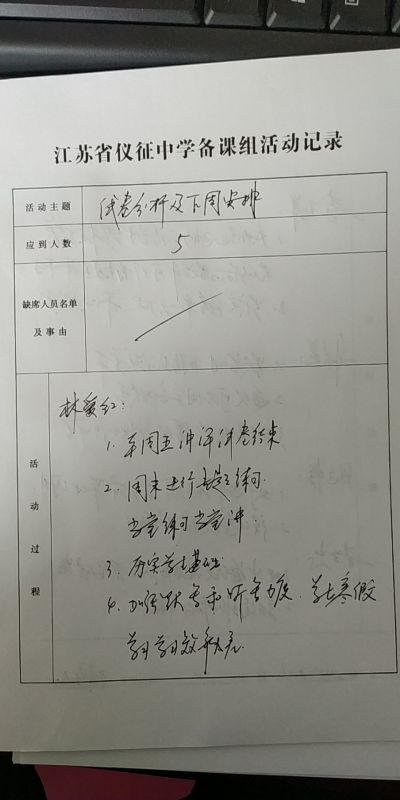 江苏省仪征中学备课组活动记录
活动主题 试卷分析及下周安排
应到人数 5
缺席人员名单
及事由
活动过程
林爱红：
1. 本周五讲评试卷结束
2. 周末进行专题练习.
当堂练习当堂讲.
3. 夯实学生基础.
4. 加强默写和听写力度.学生寒假
学习